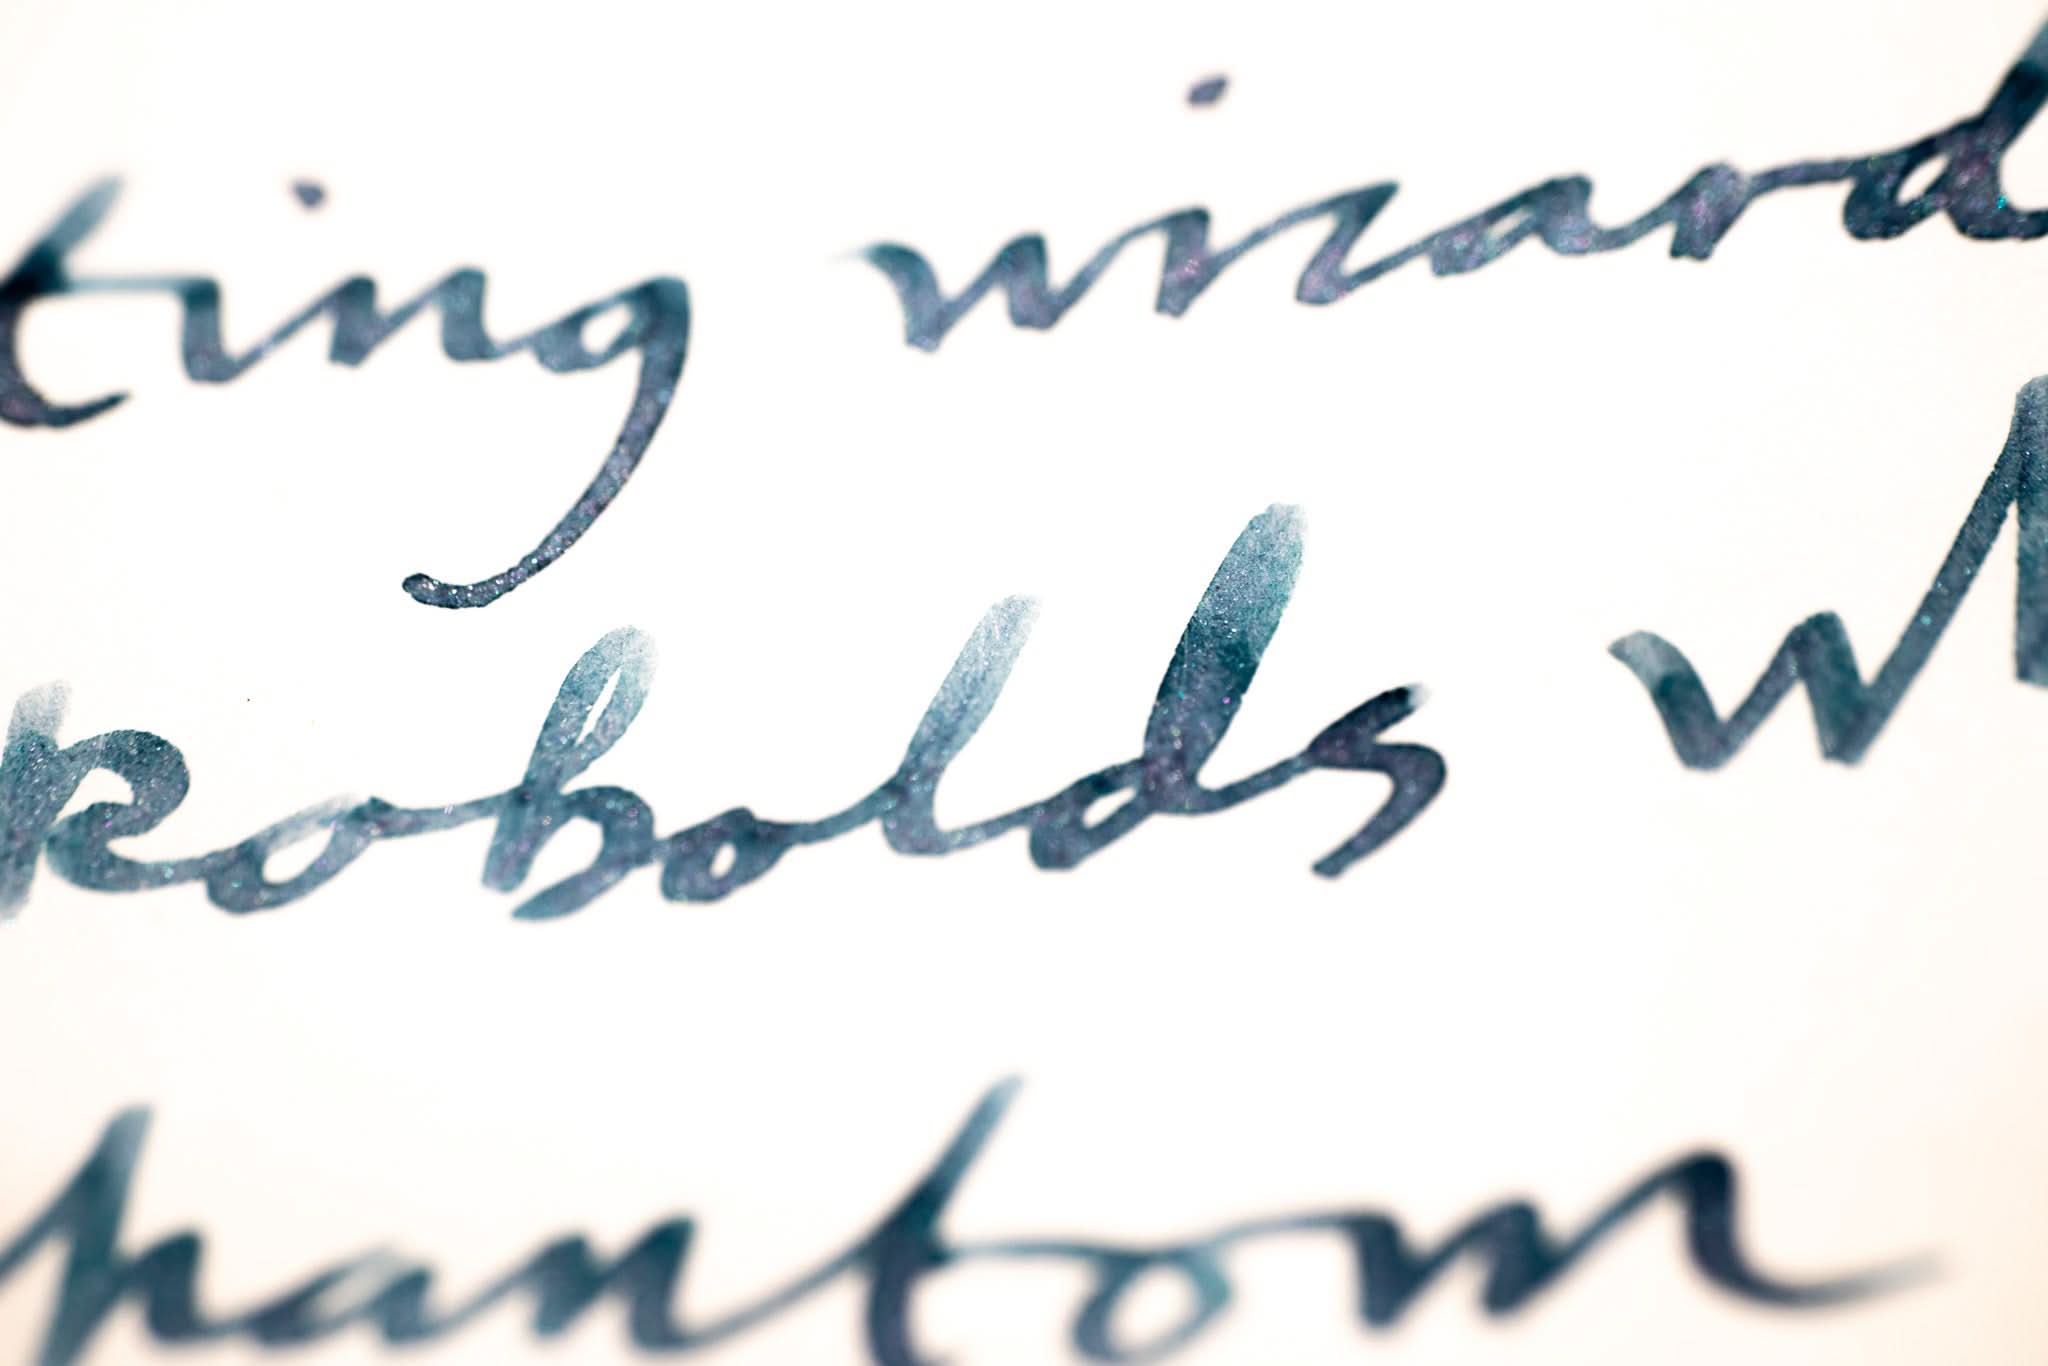 ting wizard
kobolds wh
hantom